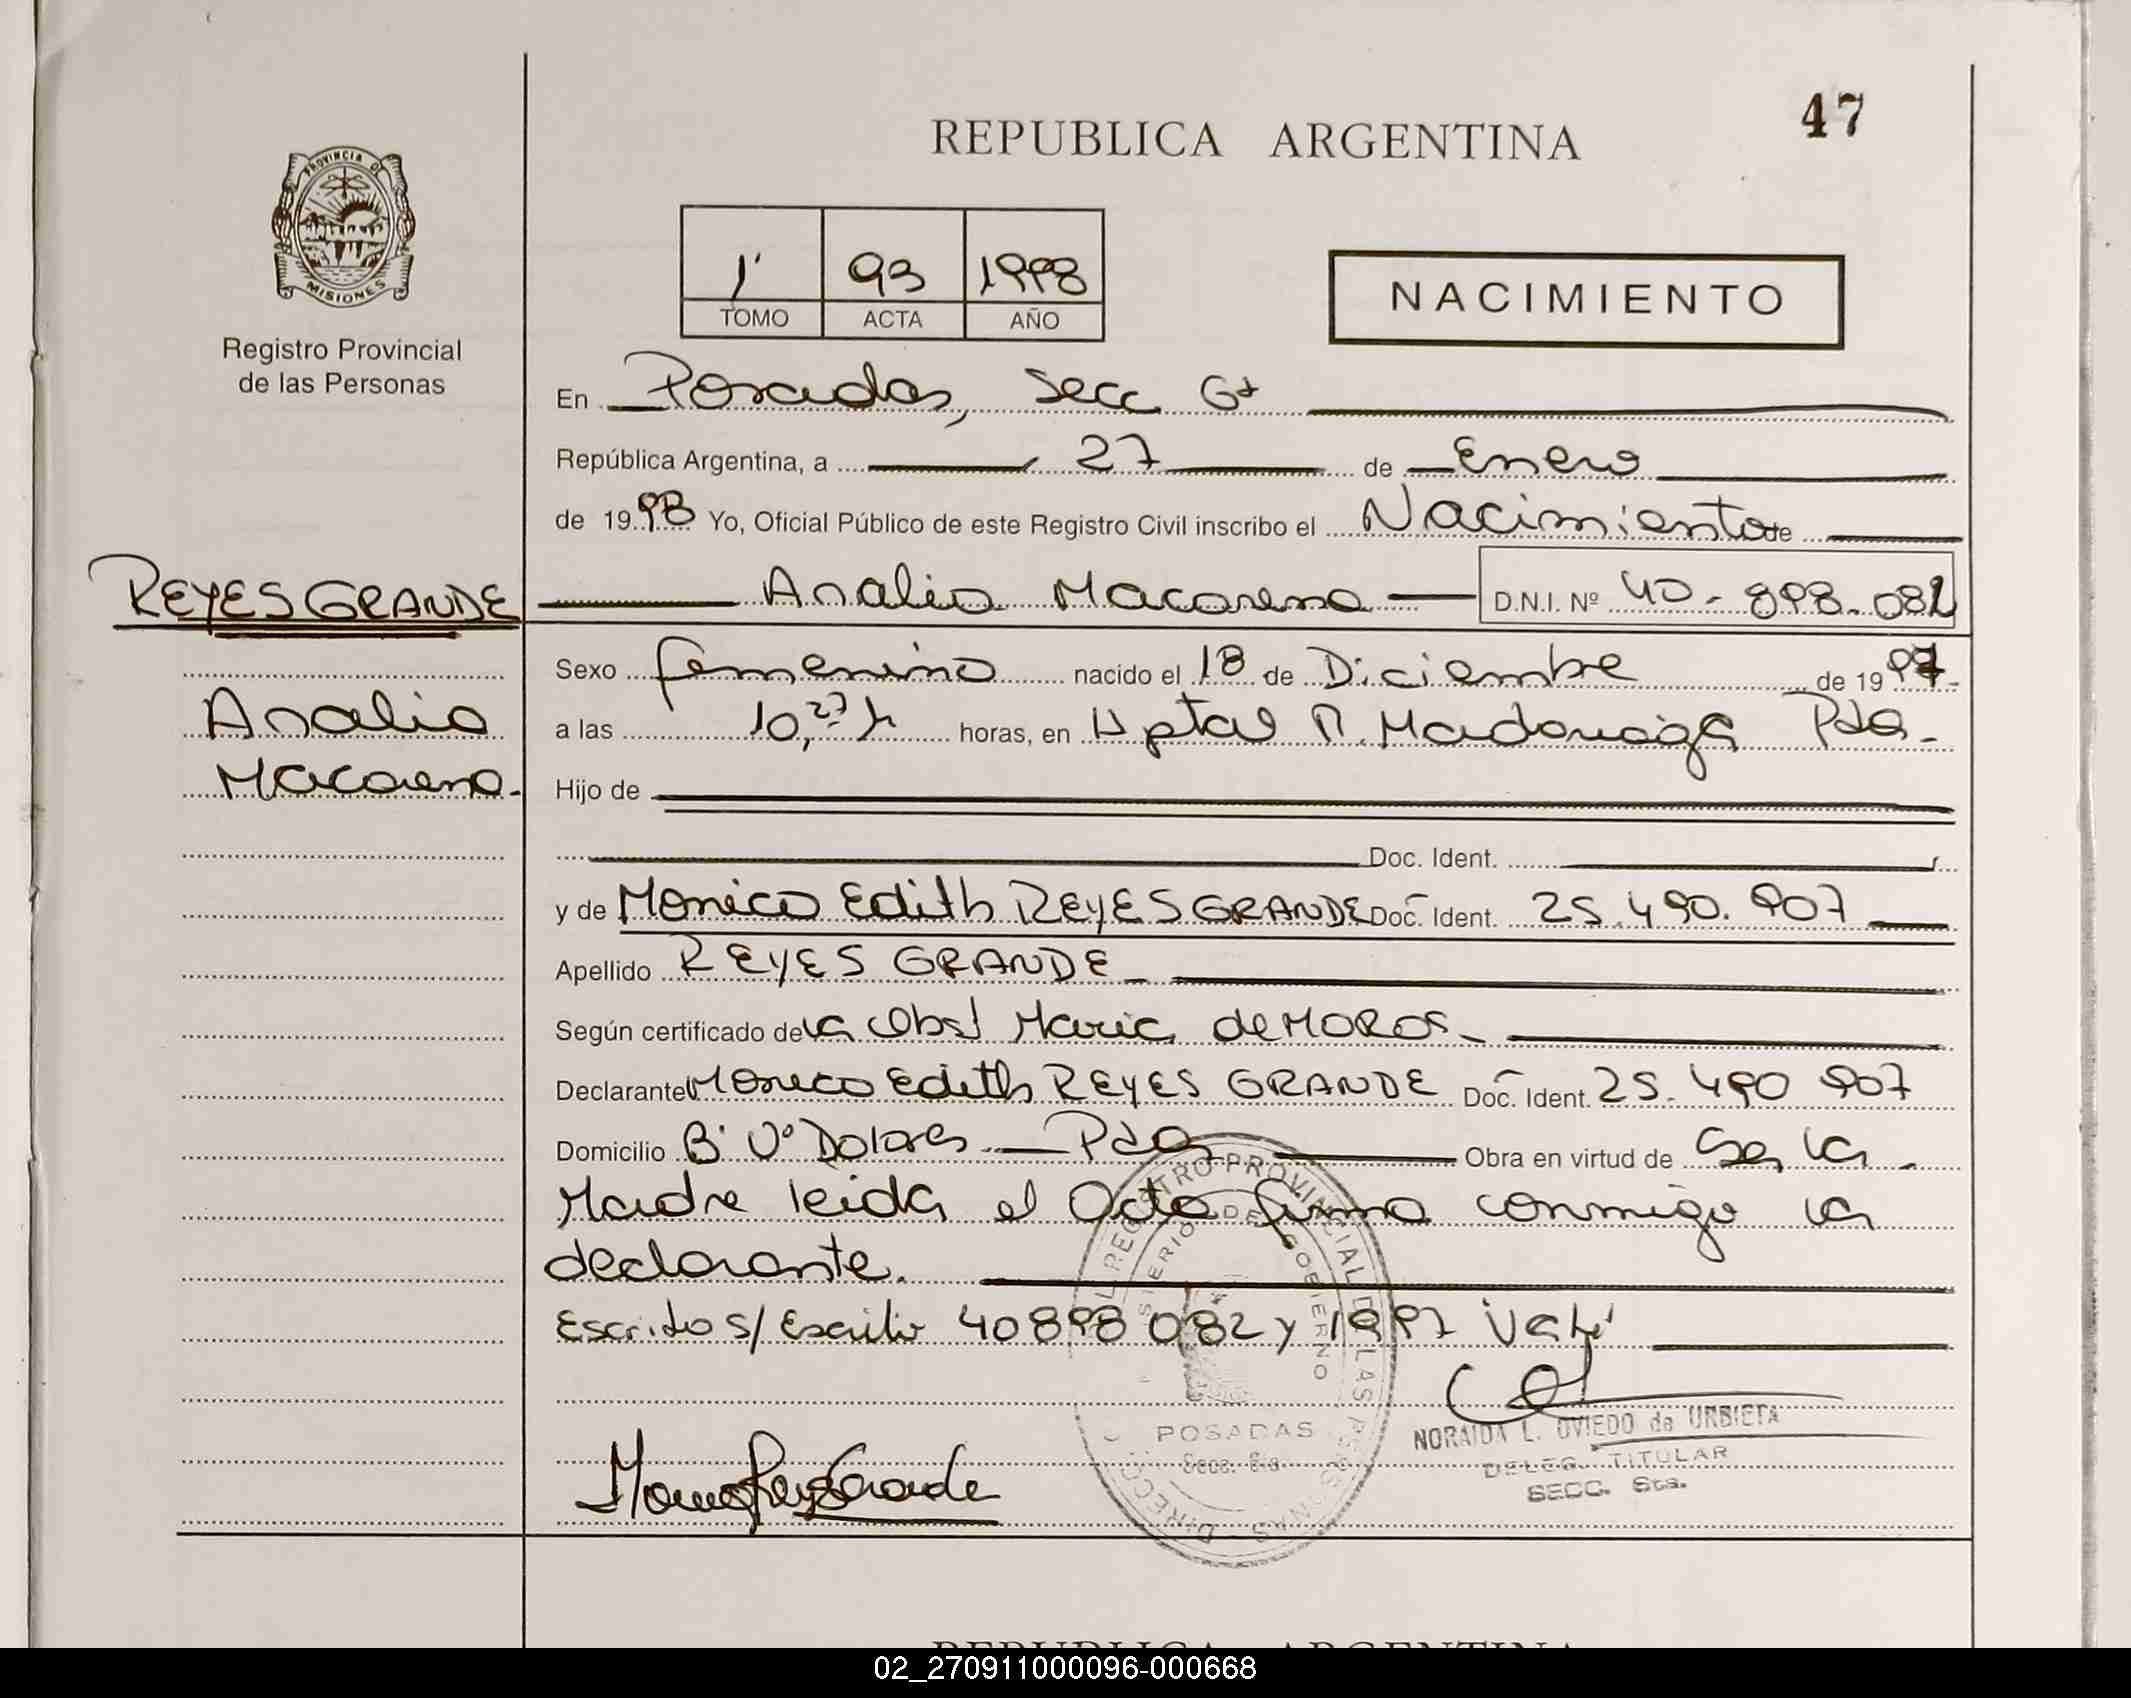 47
REPUBLICA ARGENTINA
PROVINCIA DE
MISIONES
Registro Provincial
de las Personas
1º 93 1998
TOMO ACTA AÑO
NACIMIENTO
En Posadas, Secc 6ta
República Argentina, a 27 de Enero
de 1998 Yo, Oficial Público de este Registro Civil inscribo el Nacimiento de
REYES GRANDE
Analia Macarena D.N.I. Nº 40.898.082
Analia
Macarena.
Sexo femenino nacido el 18 de Diciembre de 1997.
a las 10,27 h horas, en Hptal R. Madariaga Pdas.
Hijo de
Doc. Ident.
y de Monica Edith REYES GRANDE Doc. Ident. 25.490.907
Apellido REYES GRANDE
Según certificado de la Obst Maria de MOROS
Declarante Monica Edith REYES GRANDE Doc. Ident. 25.490 907
Domicilio Bº Vº Dolores Pdas Obra en virtud de Ser la
Madre leida el Acta firma conmigo la
declarante.
Escrito s/ Escrito 40898082 y 1997 Vale
NORAIDA L. OVIEDO de URBIETA
DELEG. TITULAR
SECC. 6ta.
REGISTRO PROVINCIAL DE LAS PERSONAS
MINISTERIO DE GOBIERNO
POSADAS
Secc. 6ta
REPUBLICA ARGENTINA
02_270911000096-000668